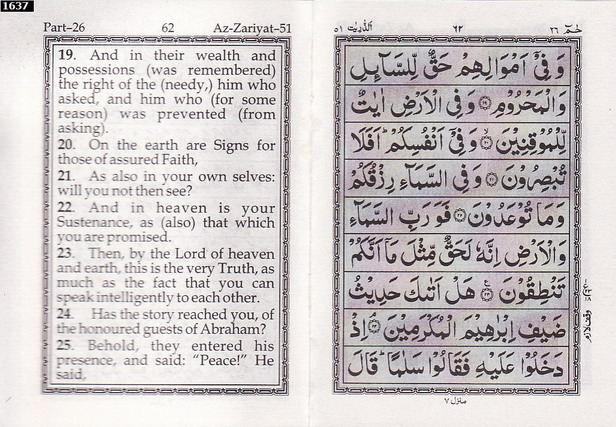 1637
Part–26 62 Az-Zariyat–51
19. And in their wealth and
possessions (was remembered)
the right of the (needy,) him who
asked, and him who (for some
reason) was prevented (from
asking).
20. On the earth are Signs for
those of assured Faith,
21. As also in your own selves:
will you not then see?
22. And in heaven is your
Sustenance, as (also) that which
you are promised.
23. Then, by the Lord of heaven
and earth, this is the very Truth, as
much as the fact that you can
speak intelligently to each other.
24. Has the story reached you, of
the honoured guests of Abraham?
25. Behold, they entered his
presence, and said: "Peace!" He
said,
حٰمٓ ٢٦ ٦٢ الذّٰریٰت ٥١
وَفِیْۤ اَمْوَالِهِمْ حَقٌّ لِّلسَّآىِٕلِ
وَالْمَحْرُوْمِ ﴿١٩﴾ وَفِی الْاَرْضِ اٰیٰتٌ
لِّلْمُوْقِنِیْنَ ﴿٢٠﴾ وَفِیْۤ اَنْفُسِكُمْ ؕ اَفَلَا
تُبْصِرُوْنَ ﴿٢١﴾ وَفِی السَّمَآءِ رِزْقُكُمْ
وَمَا تُوْعَدُوْنَ ﴿٢٢﴾ فَوَرَبِّ السَّمَآءِ
وَالْاَرْضِ اِنَّهٗ لَحَقٌّ مِّثْلَ مَاۤ اَنَّكُمْ
تَنْطِقُوْنَ ﴿٢٣﴾ هَلْ اَتٰىكَ حَدِیْثُ
ضَیْفِ اِبْرٰهِیْمَ الْمُكْرَمِیْنَ ﴿٢٤﴾ اِذْ
دَخَلُوْا عَلَیْهِ فَقَالُوْا سَلٰمًا ؕ قَالَ
منزل ٧